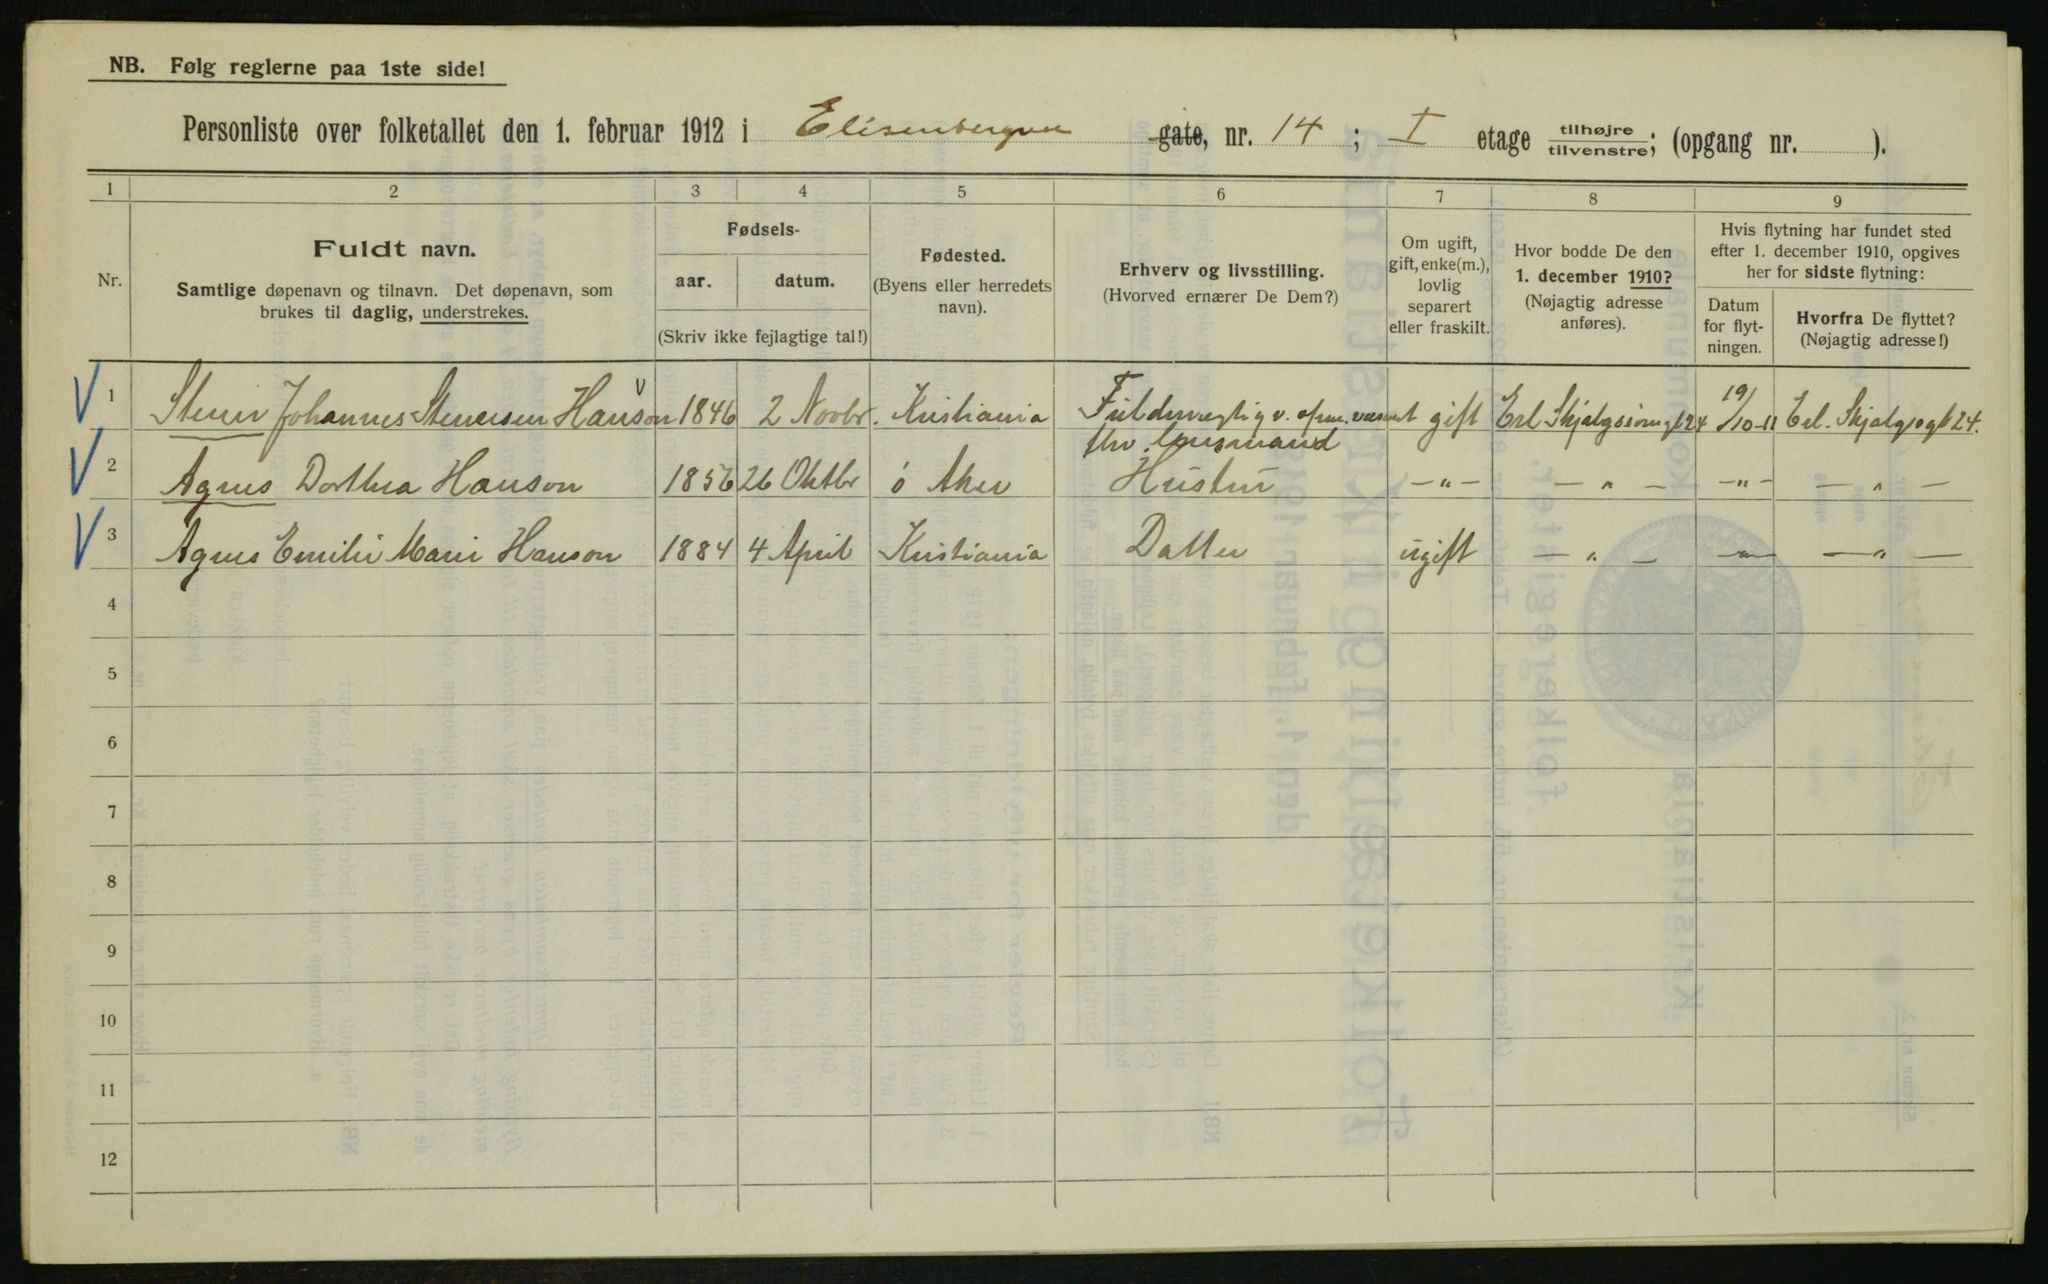 NB. Følg reglerne paa 1ste side!
Personliste over folketallet den 1. februar 1912 i Elisenbergvei gate, nr. 14 ; I etage tilhøjre tilvenstre; (opgang nr. ).
1 2 3 4 5 6 7 8 9
Nr.
Fuldt navn.
Samtlige døpenavn og tilnavn. Det døpenavn, som
brukes til daglig, understrekes.
Fødsels-
aar. datum.
(Skriv ikke fejlagtige tal!)
Fødested.
(Byens eller herredets
navn).
Erhverv og livsstilling.
(Hvorved ernærer De Dem?)
Om ugift,
gift, enke(m.),
lovlig
separert
eller fraskilt.
Hvor bodde De den
1. december 1910?
(Nøjagtig adresse
anføres).
Hvis flytning har fundet sted
efter 1. december 1910, opgives
her for sidste flytning:
Datum
for flyt-
ningen.
Hvorfra De flyttet?
(Nøjagtig adresse!)
1 Johannes Stenersen Hanson 1846 2 Novbr. Kristiania gift Erl Skjalgssonsgt 24 19/10-11 Erl. Skjalgsgt 24.
2 Agnes Dorthea Hanson 1856 26 Oktbr ö Aker Hustru -"- - " - -"- - " -
3 Agnes Emilie Marie Hanson 1884 4 April Kristiania Datter ugift - " - -"- - " -
4
5
6
7
8
9
10
11
12